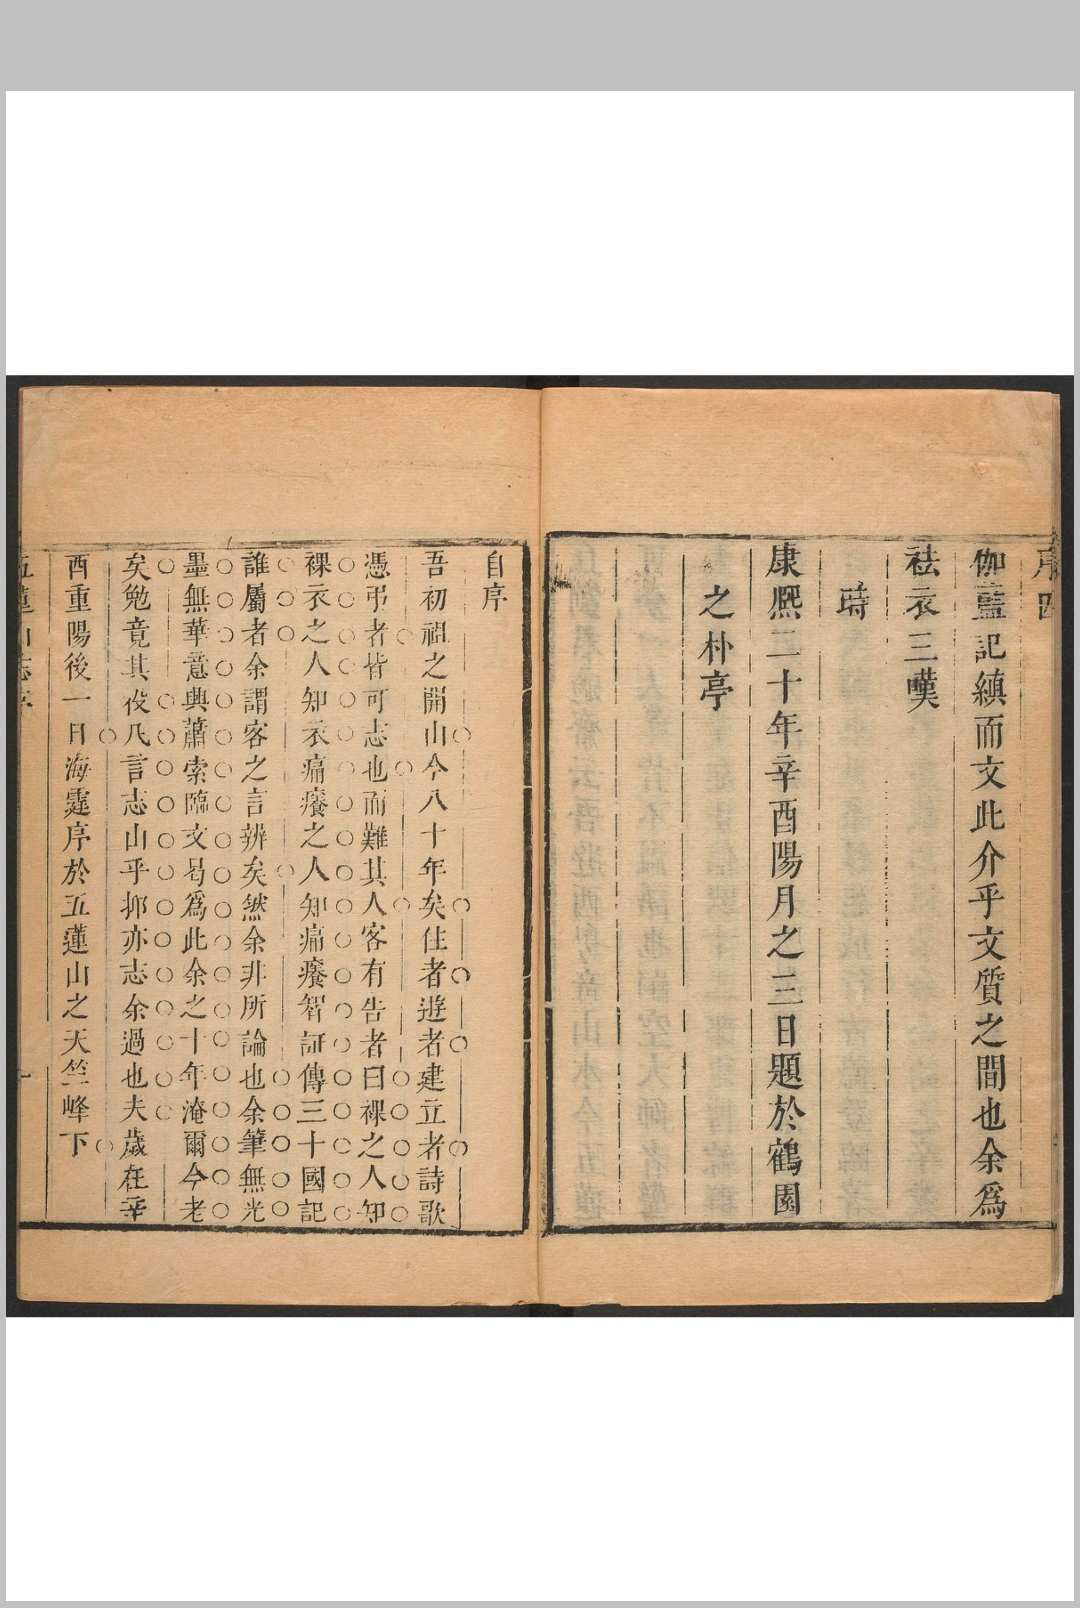 序 四
伽藍記縝而文此介乎文質之間也余爲
袪衣三嘆
時
康熙二十年辛酉陽月之三日題於鶴園
之朴亭
自序
吾初祖之開山今八十年矣住者遊者建立者詩歌
憑弔者皆可志也而難其人客有告者曰裸之人知
裸衣之人知衣痛癢之人知痛癢智証傳三十國記
誰屬者余謂客之言辨矣然余非所論也余筆無光
墨無華意興蕭索臨文曷爲此余之十年淹爾今老
矣勉竟其役凡言志山乎抑亦志余過也夫歲在辛
酉重陽後一日海霆序於五蓮山之天竺峰下
五蓮山志序 一